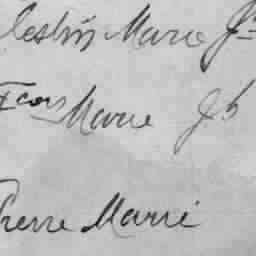 Celestin Marie Jh
Fcois Marie Jh
Pierre Marie